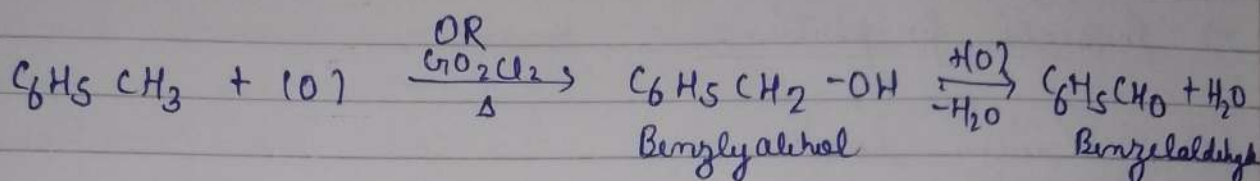 OR
C6H5 CH3 + [O] CrO2Cl2 → Δ C6H5CH2-OH +[O] → -H2O C6H5CHO + H2O
Benzlyalchol Benzelaldehyde